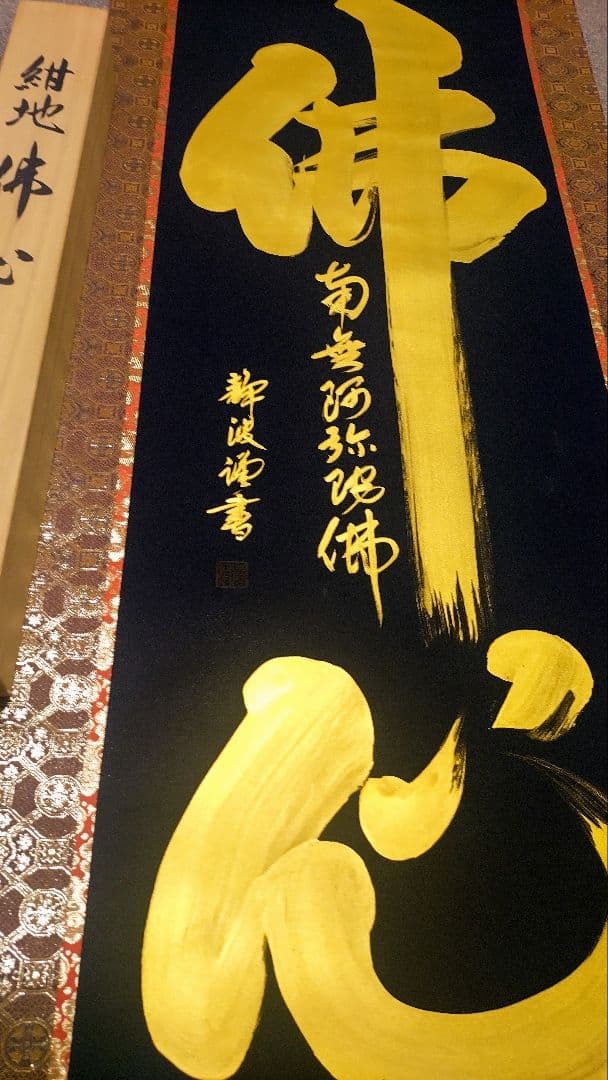 紺地佛心
佛心
南無阿弥陀佛
靜波謹書